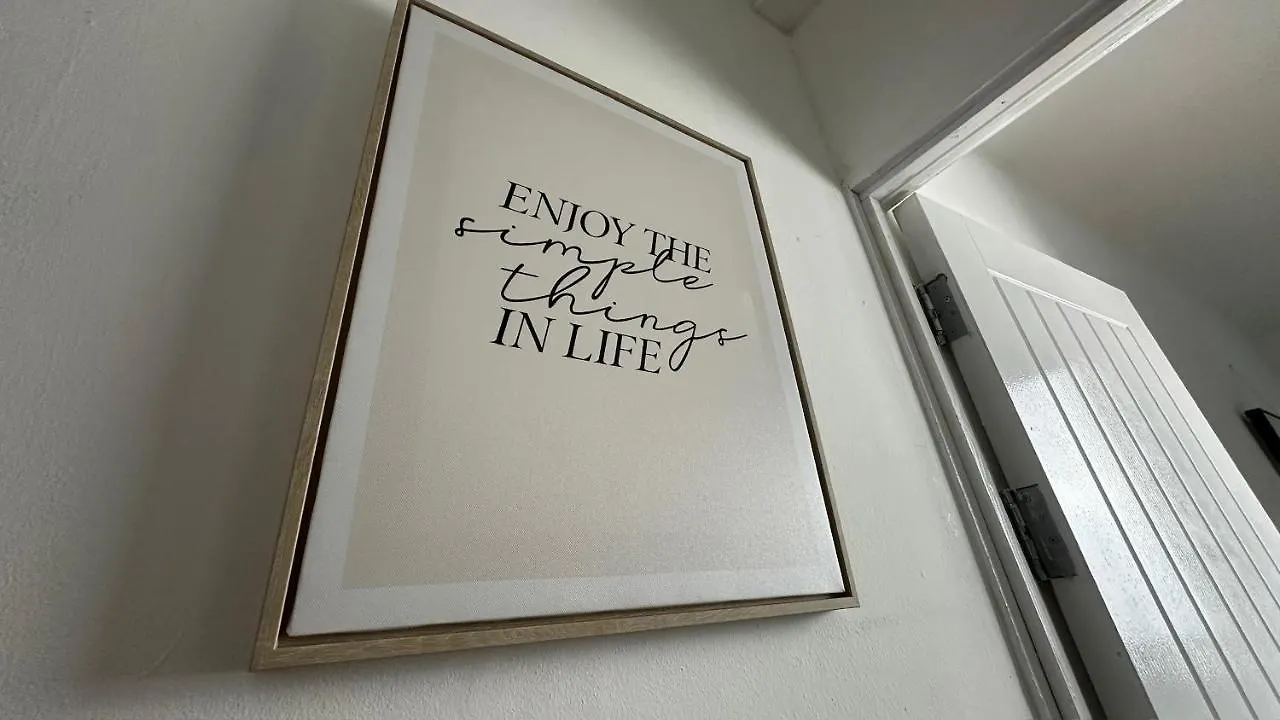 ENJOY THE
simple
things
IN LIFE